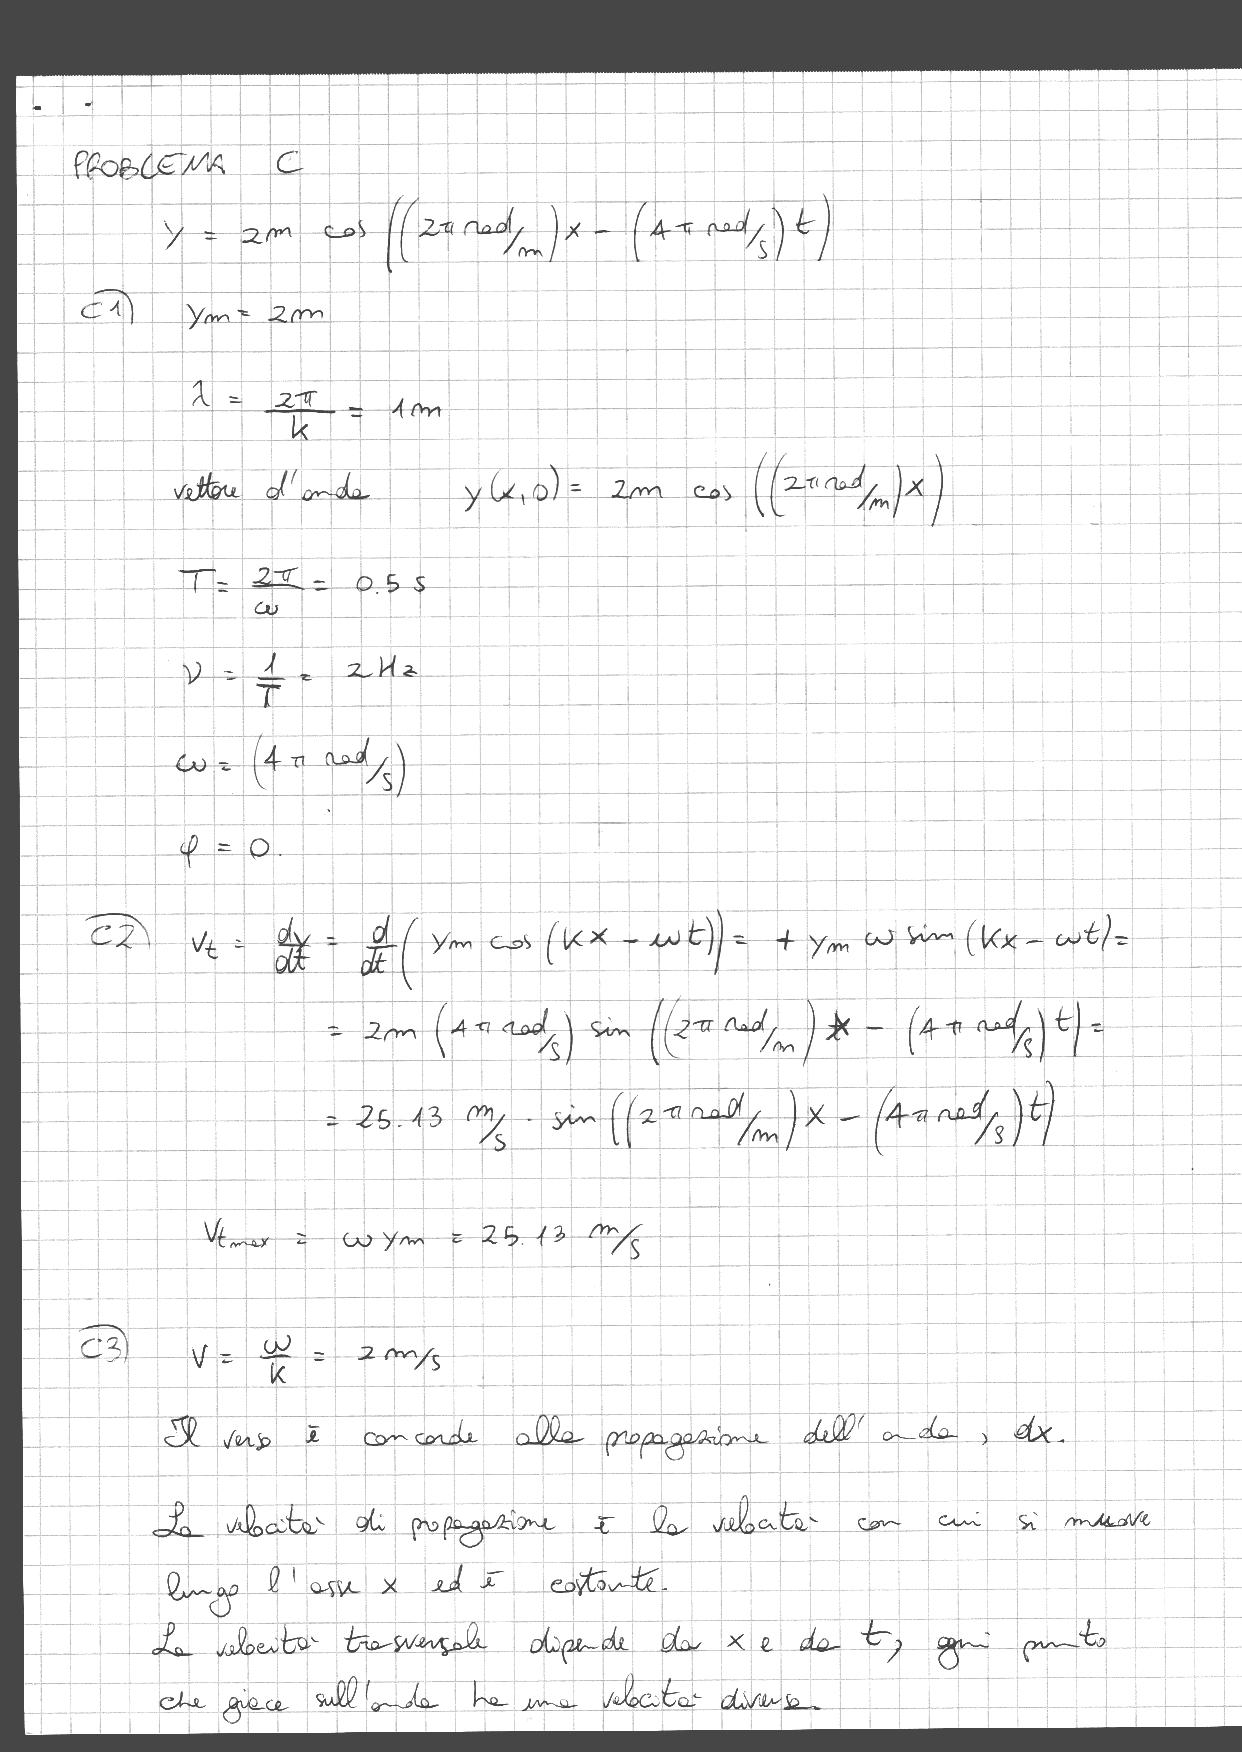 PROBLEMA C
y = 2m cos ((2π rad/m)x - (4π rad/s)t)
C1) ym = 2m
λ = 2π/k = 1m
vettore d'onda y(x,0) = 2m cos ((2π rad/m)x)
T = 2π/ω = 0.5 s
ν = 1/T = 2Hz
ω = (4π rad/s)
φ = 0.
C2) Vt = dy/dt = d/dt (ym cos (Kx - ωt)) = + ym ω sin (Kx - ωt) =
= 2m (4π rad/s) sin ((2π rad/m) x - (4π rad/s) t) =
= 25.13 m/s · sin ((2π rad/m) x - (4π rad/s) t)
Vtmax = ω ym = 25.13 m/s
C3) V = ω/k = 2 m/s
Il verso è concorde alla propagazione dell'onda, dx.
La velocità di propagazione è la velocità con cui si muove
lungo l'asse x ed è costante.
La velocità trasversale dipende da x e da t, ogni punto
che giace sull'onda ha una velocità diversa.